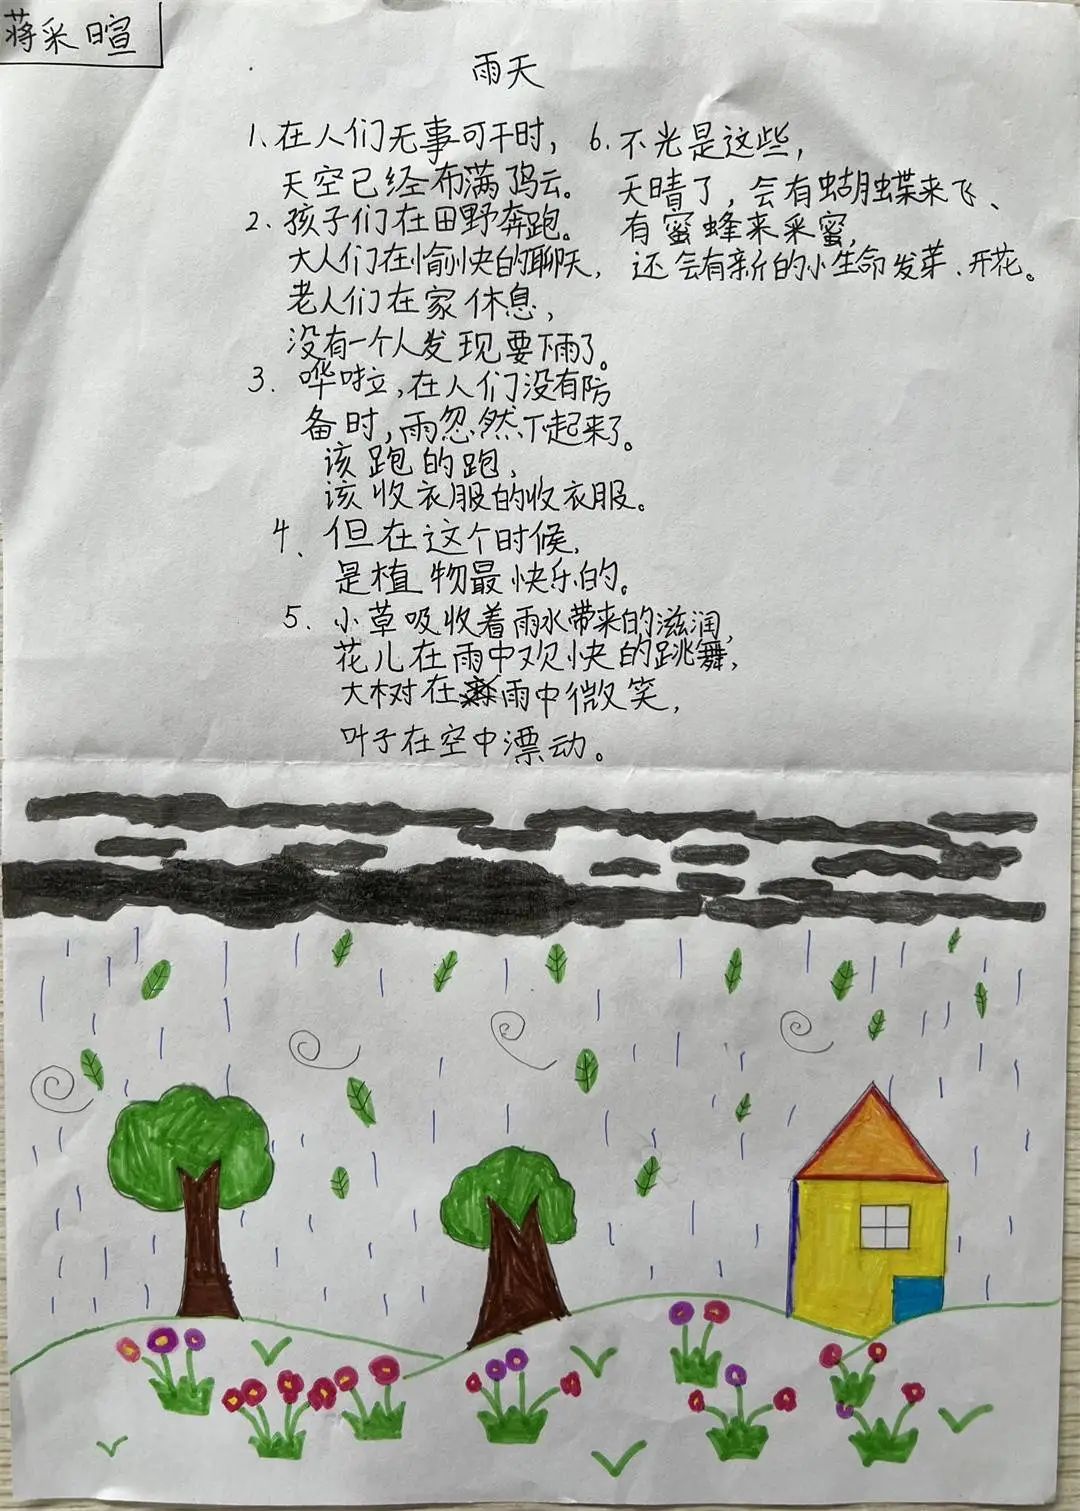 蒋采暄
雨天
1.在人们无事可干时,
天空已经布满乌云。
2.孩子们在田野奔跑。
大人们在愉快的聊天,
老人们在家休息,
没有一个人发现要下雨了。
3.哗啦,在人们没有防
备时,雨忽然下起来了。
该跑的跑,
该收衣服的收衣服。
4、但在这个时候,
是植物最快乐的。
5、小草吸收着雨水带来的滋润,
花儿在雨中欢快的跳舞,
大树在雨中微笑,
叶子在空中漂动。
6.不光是这些,
天晴了,会有蝴蝶来飞、
有蜜蜂来采蜜,
还会有新的小生命发芽、开花。